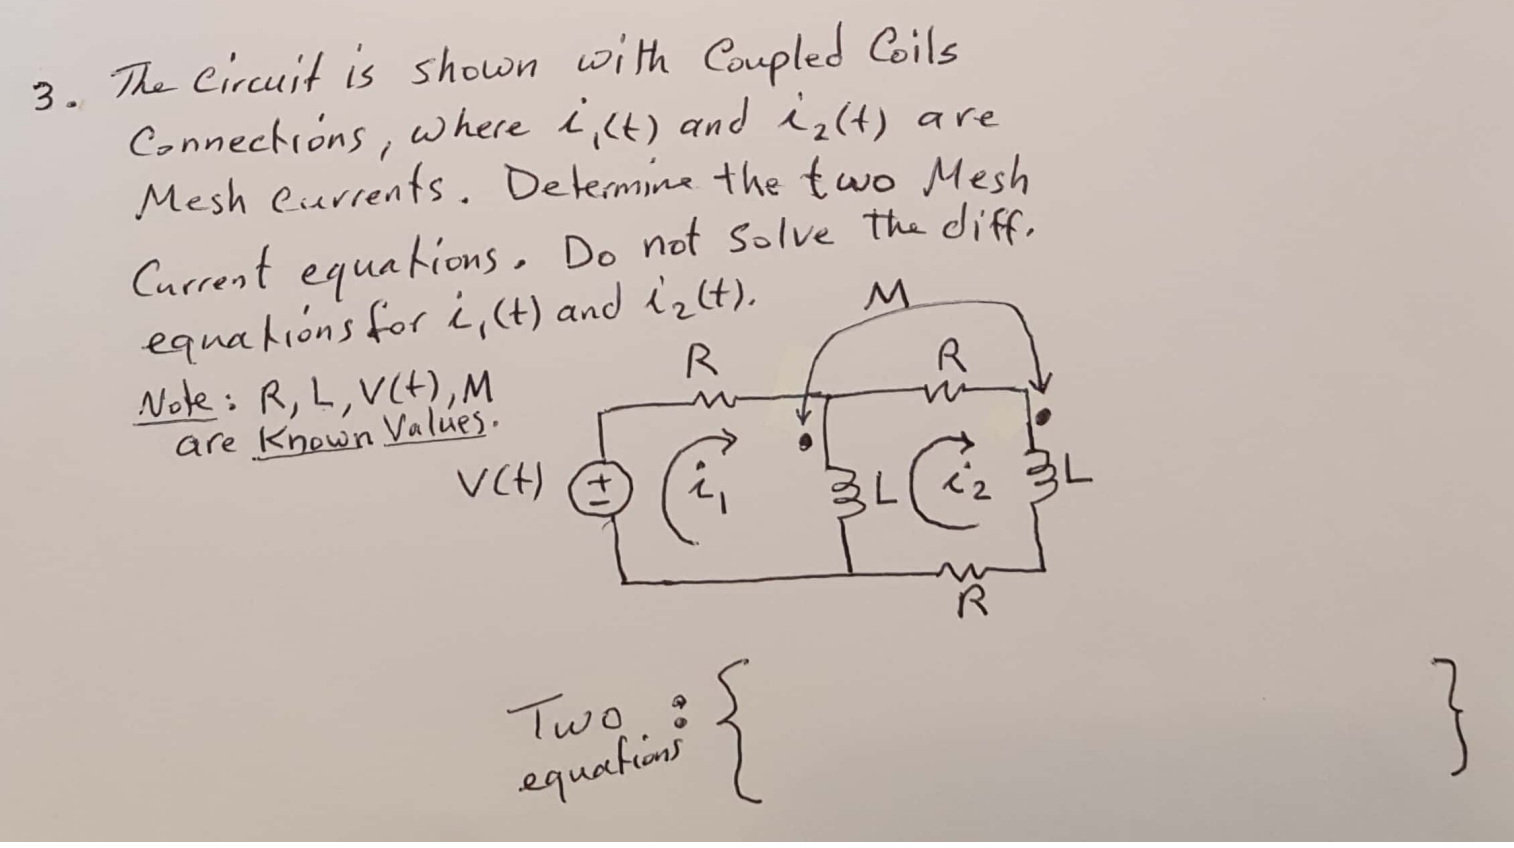 3. The Circuit is shown with Coupled Coils
Connections, where i₁(t) and i₂(t) are
Mesh Currents. Determine the two Mesh
Current equations. Do not solve the diff.
equations for i₁(t) and i₂(t).
Note: R, L, V(t), M
are Known Values.
M
R
R
V(t)
+
-
i₁
L
i₂
L
R
Two :
equations
{ }